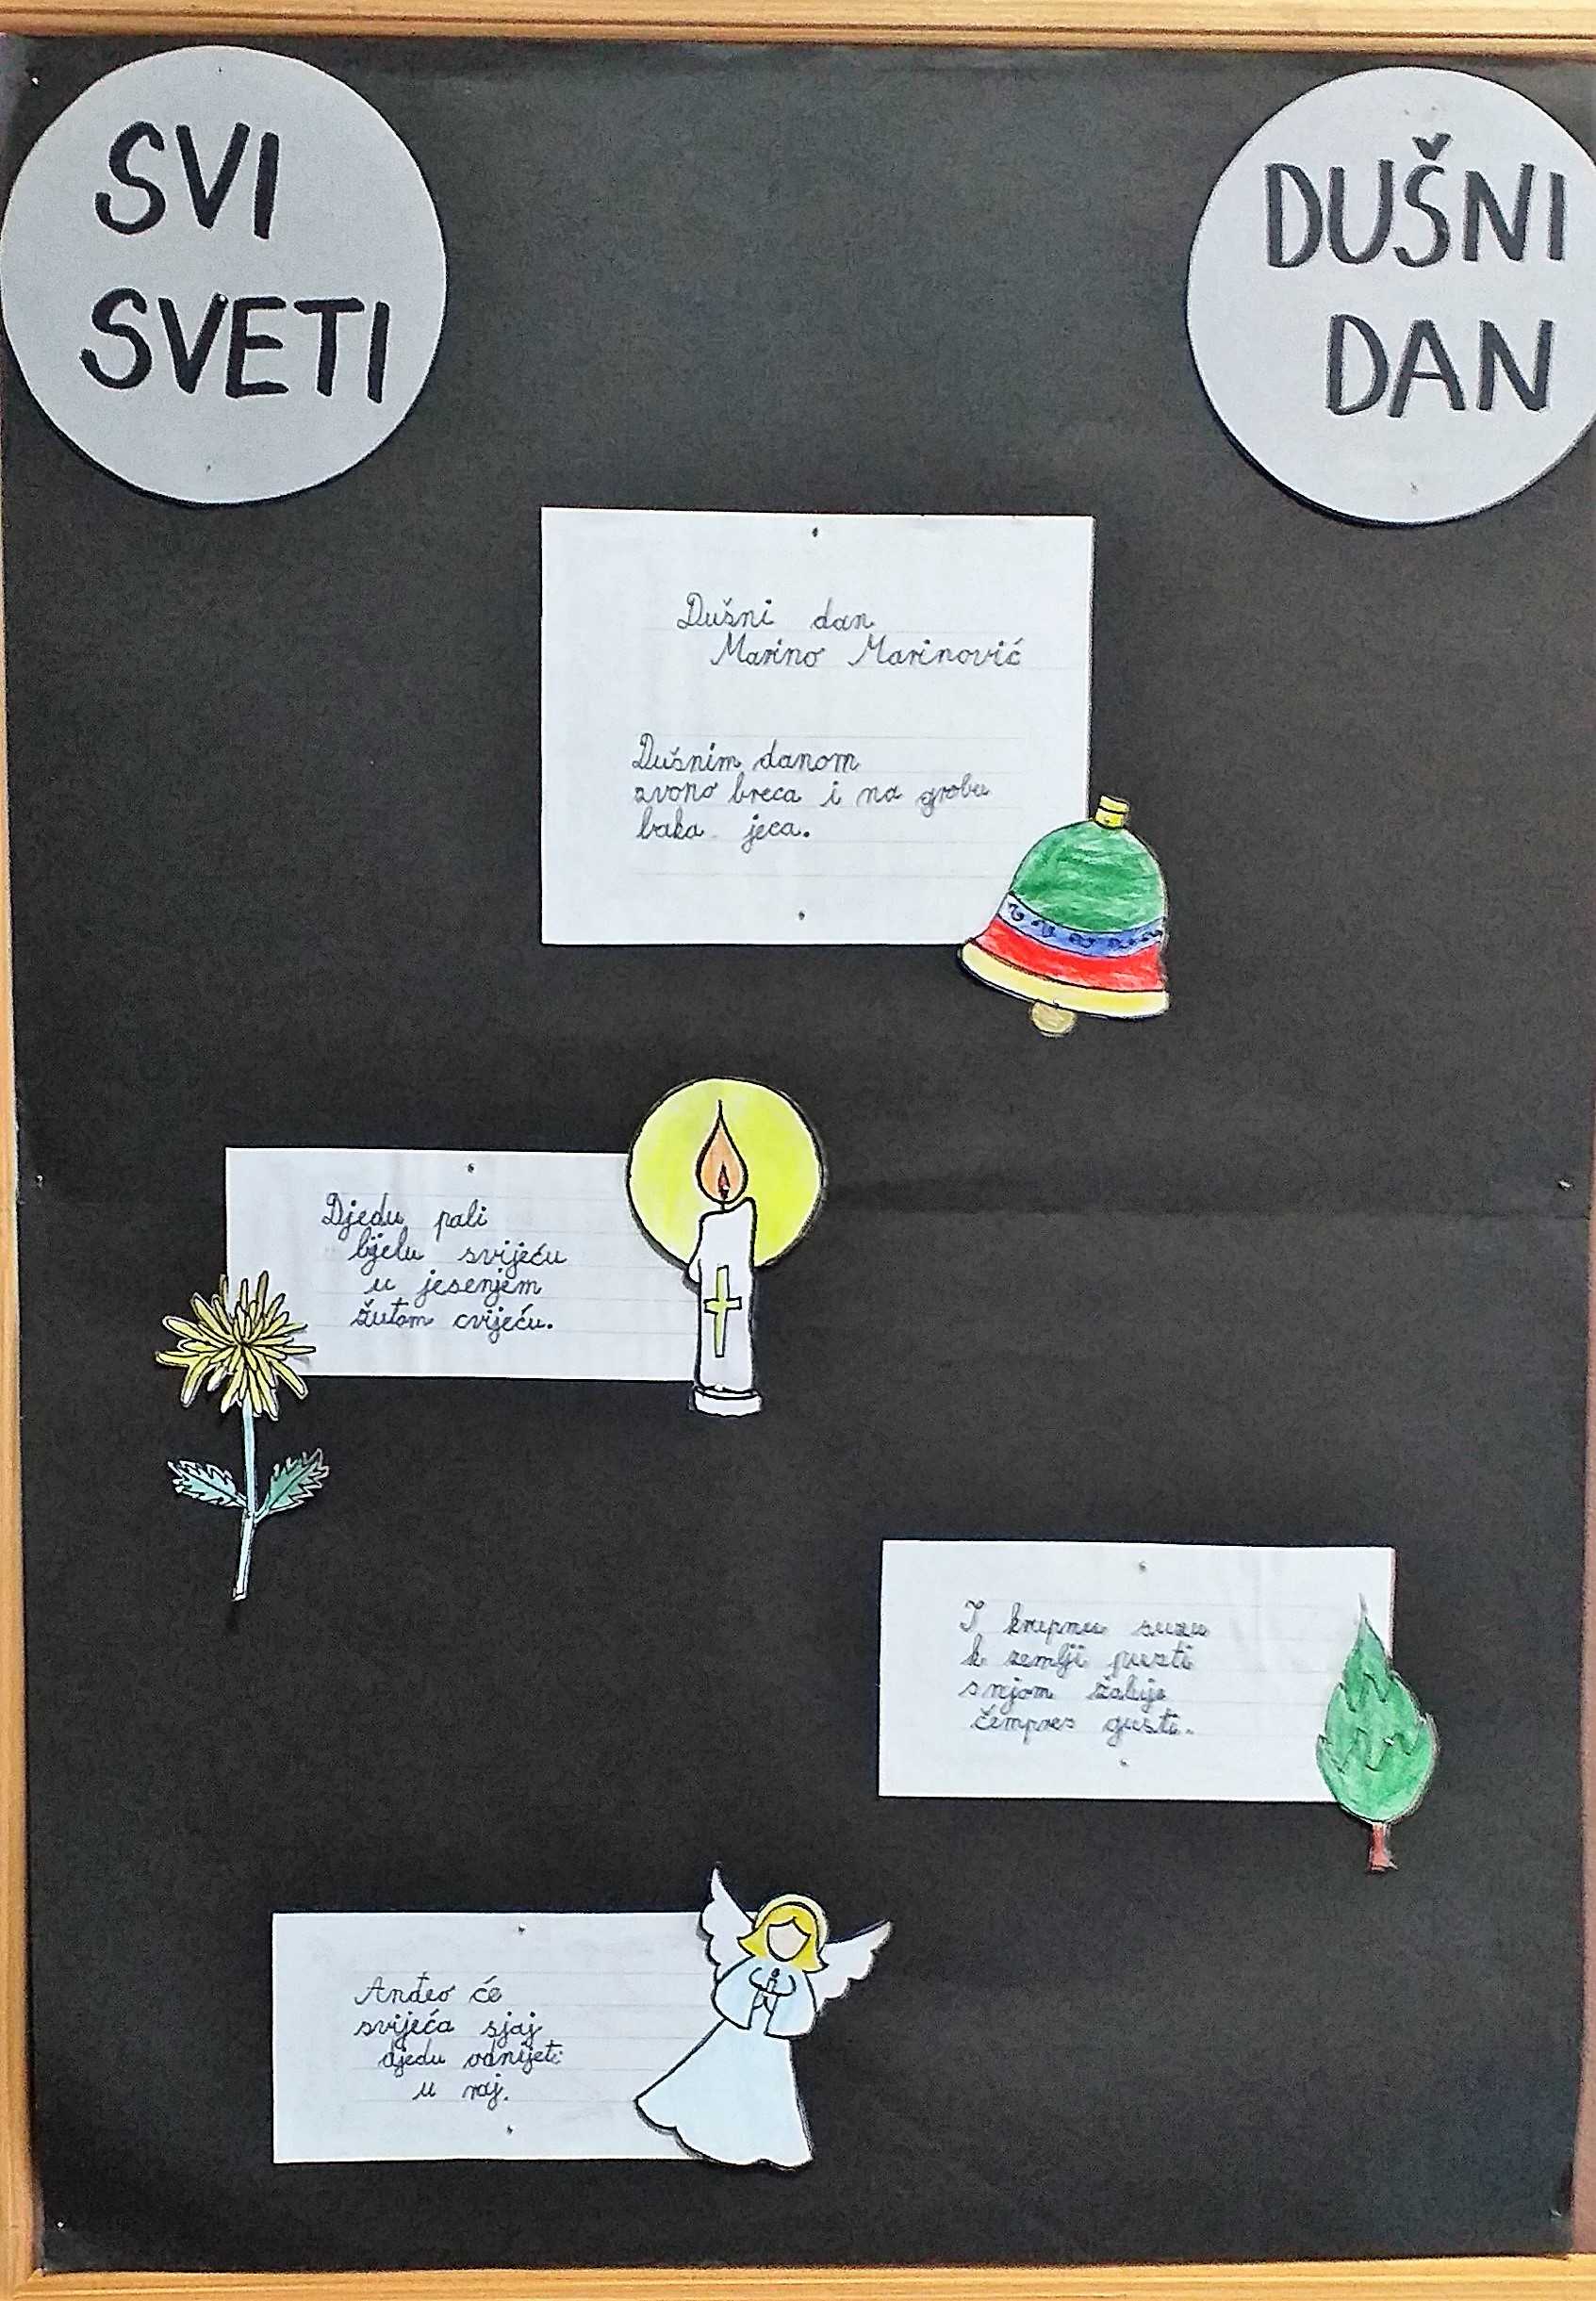 SVI
SVETI
DUŠNI
DAN
Dušni dan
Marino Marinović
Dušnim danom
zvono breca i na grobu
baka jeca.
Djedu pali
bijelu svijeću
u jesenjem
žutom cvijeću.
I krupnu suzu
k zemlji pusti
s njom žaluje
čempres gusti.
Anđeo će
svijeća sjaj
djedu odnijeti
u raj.